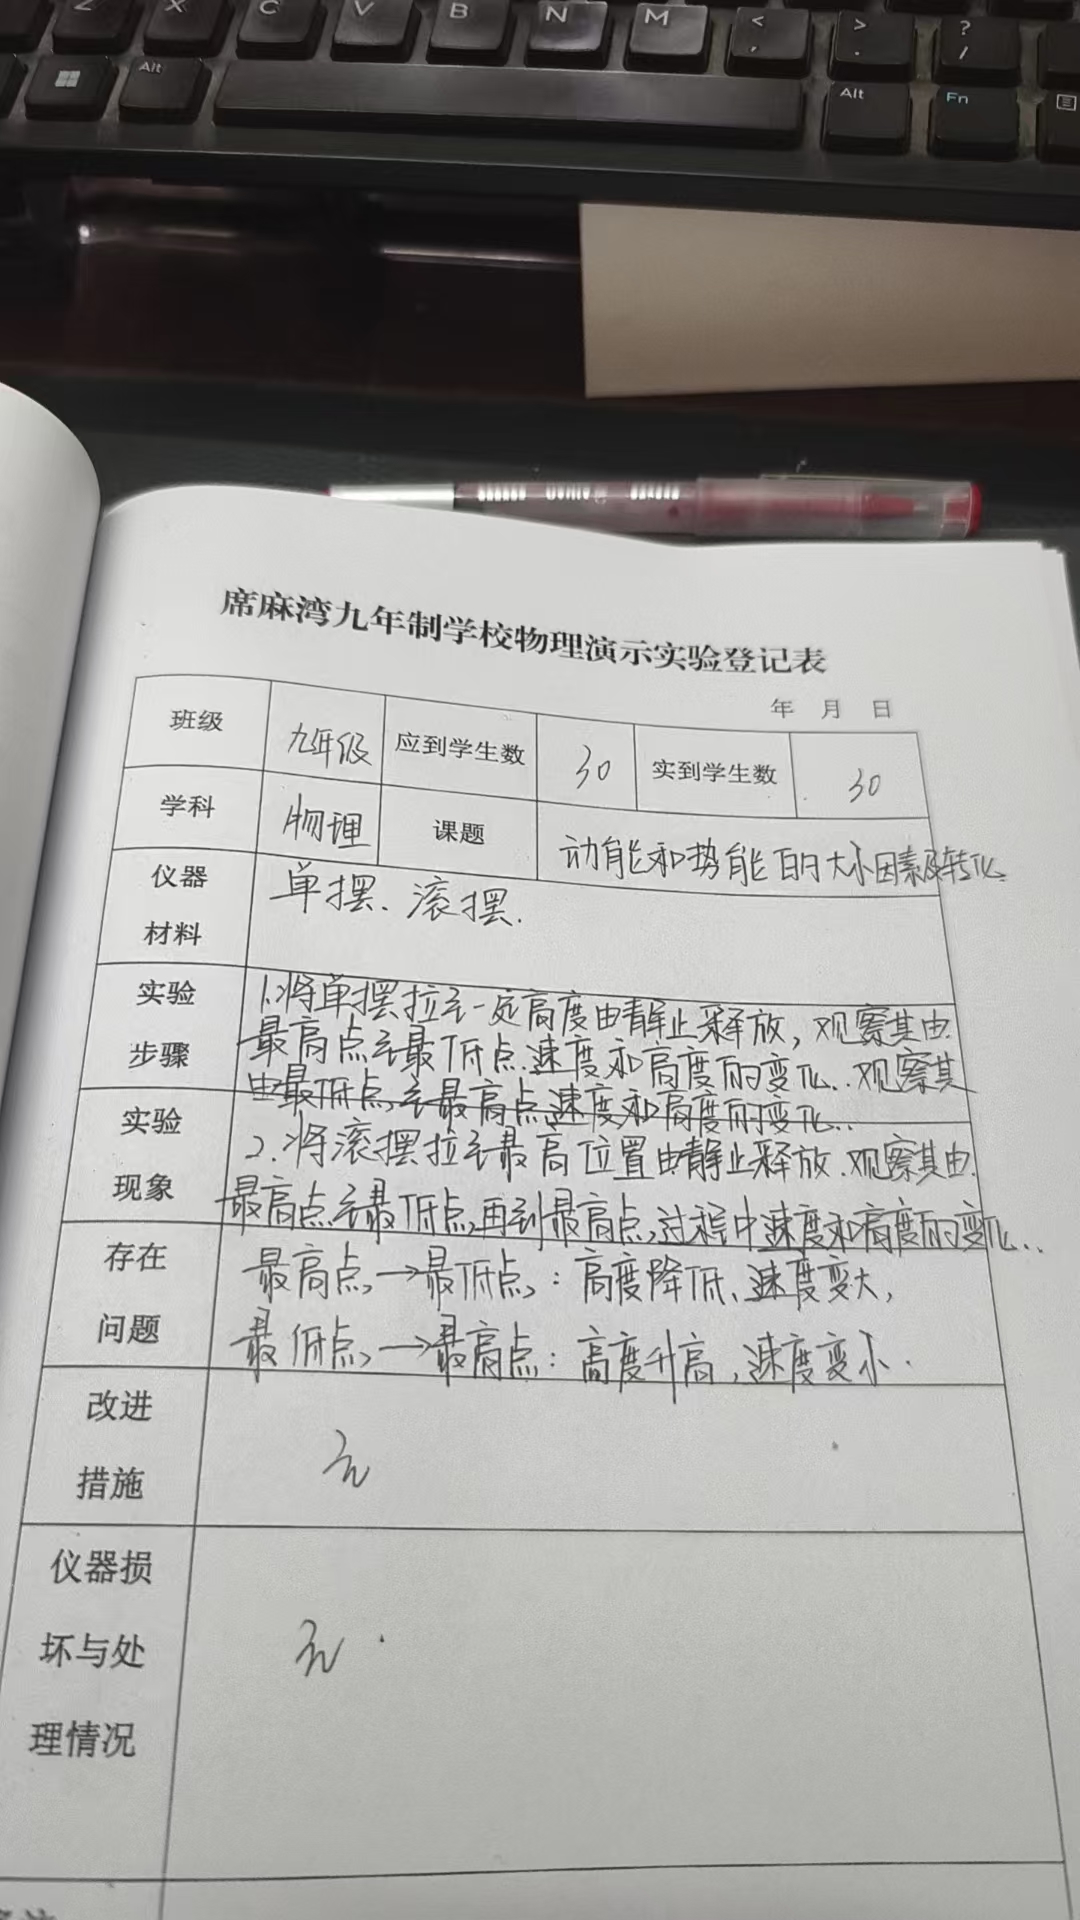 Z X C V B N M < , > . ? /
Alt Alt Fn
席麻湾九年制学校物理演示实验登记表
年 月 日
班级 九年级 应到学生数 30 实到学生数 30
学科 物理 课题 动能和势能的大小因素及转化.
仪器材料 单摆、滚摆.
实验步骤 1.将单摆拉至一定高度由静止释放，观察其由
最高点至最低点速度和高度的变化..观察其
由最低点至最高点速度和高度的变化..
实验现象 2.将滚摆拉至最高位置由静止释放.观察其由
最高点至最低点,再到最高点,过程中速度和高度的变化..
存在问题 最高点→最低点：高度降低、速度变大,
最低点→最高点：高度升高,速度变小.
改进措施 无
仪器损坏与处理情况 无.